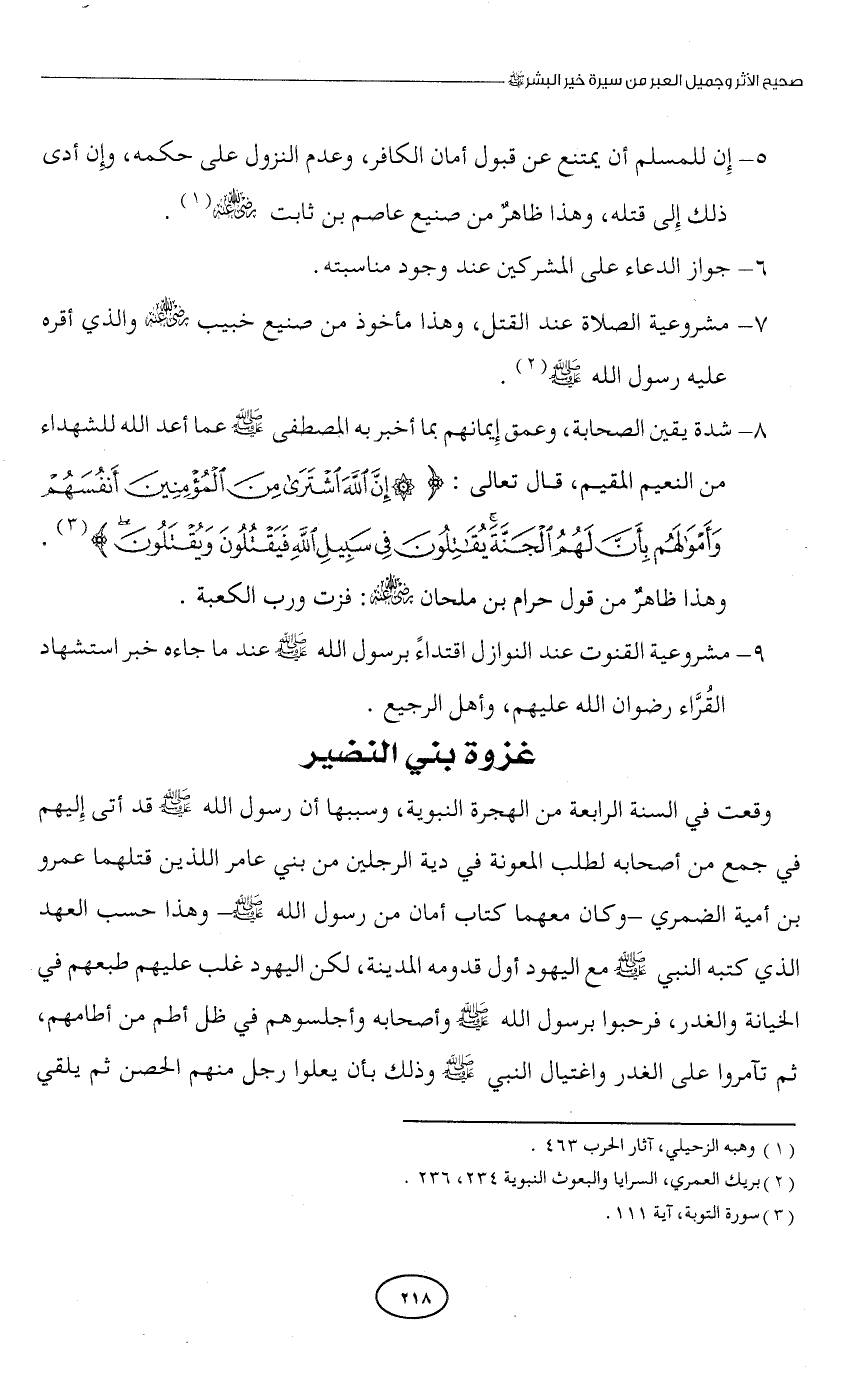 صحيح الأثر وجميل العبر من سيرة خير البشر ﷺ
٥- إن للمسلم أن يمتنع عن قبول أمان الكافر، وعدم النزول على حكمه، وإن أدى
ذلك إلى قتله، وهذا ظاهرٌ من صنيع عاصم بن ثابت رضي الله عنه(١) .
٦- جواز الدعاء على المشركين عند وجود مناسبته.
٧- مشروعية الصلاة عند القتل، وهذا مأخوذ من صنيع خبيب رضي الله عنه والذي أقره
عليه رسول الله ﷺ(٢) .
٨- شدة يقين الصحابة، وعمق إيمانهم بما أخبر به المصطفى ﷺ عما أعد الله للشهداء
من النعيم المقيم، قال تعالى : ﴿ ۞ إِنَّ ٱللَّهَ ٱشْتَرَىٰ مِنَ ٱلْمُؤْمِنِينَ أَنفُسَهُمْ
وَأَمْوَٰلَهُم بِأَنَّ لَهُمُ ٱلْجَنَّةَ ۚ يُقَٰتِلُونَ فِى سَبِيلِ ٱللَّهِ فَيَقْتُلُونَ وَيُقْتَلُونَ ۖ ﴾(٣) .
وهذا ظاهرٌ من قول حرام بن ملحان رضي الله عنه: فزت ورب الكعبة .
٩- مشروعية القنوت عند النوازل اقتداءً برسول الله ﷺ عند ما جاءه خبر استشهاد
القُرَّاء رضوان الله عليهم، وأهل الرجيع .
غزوة بني النضير
وقعت في السنة الرابعة من الهجرة النبوية، وسببها أن رسول الله ﷺ قد أتى إليهم
في جمع من أصحابه لطلب المعونة في دية الرجلين من بني عامر اللذين قتلهما عمرو
بن أمية الضمري -وكان معهما كتاب أمان من رسول الله ﷺ- وهذا حسب العهد
الذي كتبه النبي ﷺ مع اليهود أول قدومه المدينة، لكن اليهود غلب عليهم طبعهم في
الخيانة والغدر، فرحبوا برسول الله ﷺ وأصحابه وأجلسوهم في ظل أطم من أطامهم،
ثم تآمروا على الغدر واغتيال النبي ﷺ وذلك بأن يعلوا رجل منهم الحصن ثم يلقي
(١) وهبه الزحيلي، آثار الحرب ٤٦٣ .
(٢) بريك العمري، السرايا والبعوث النبوية ٢٣٤، ٢٣٦ .
(٣) سورة التوبة، آية ١١١.
٢١٨